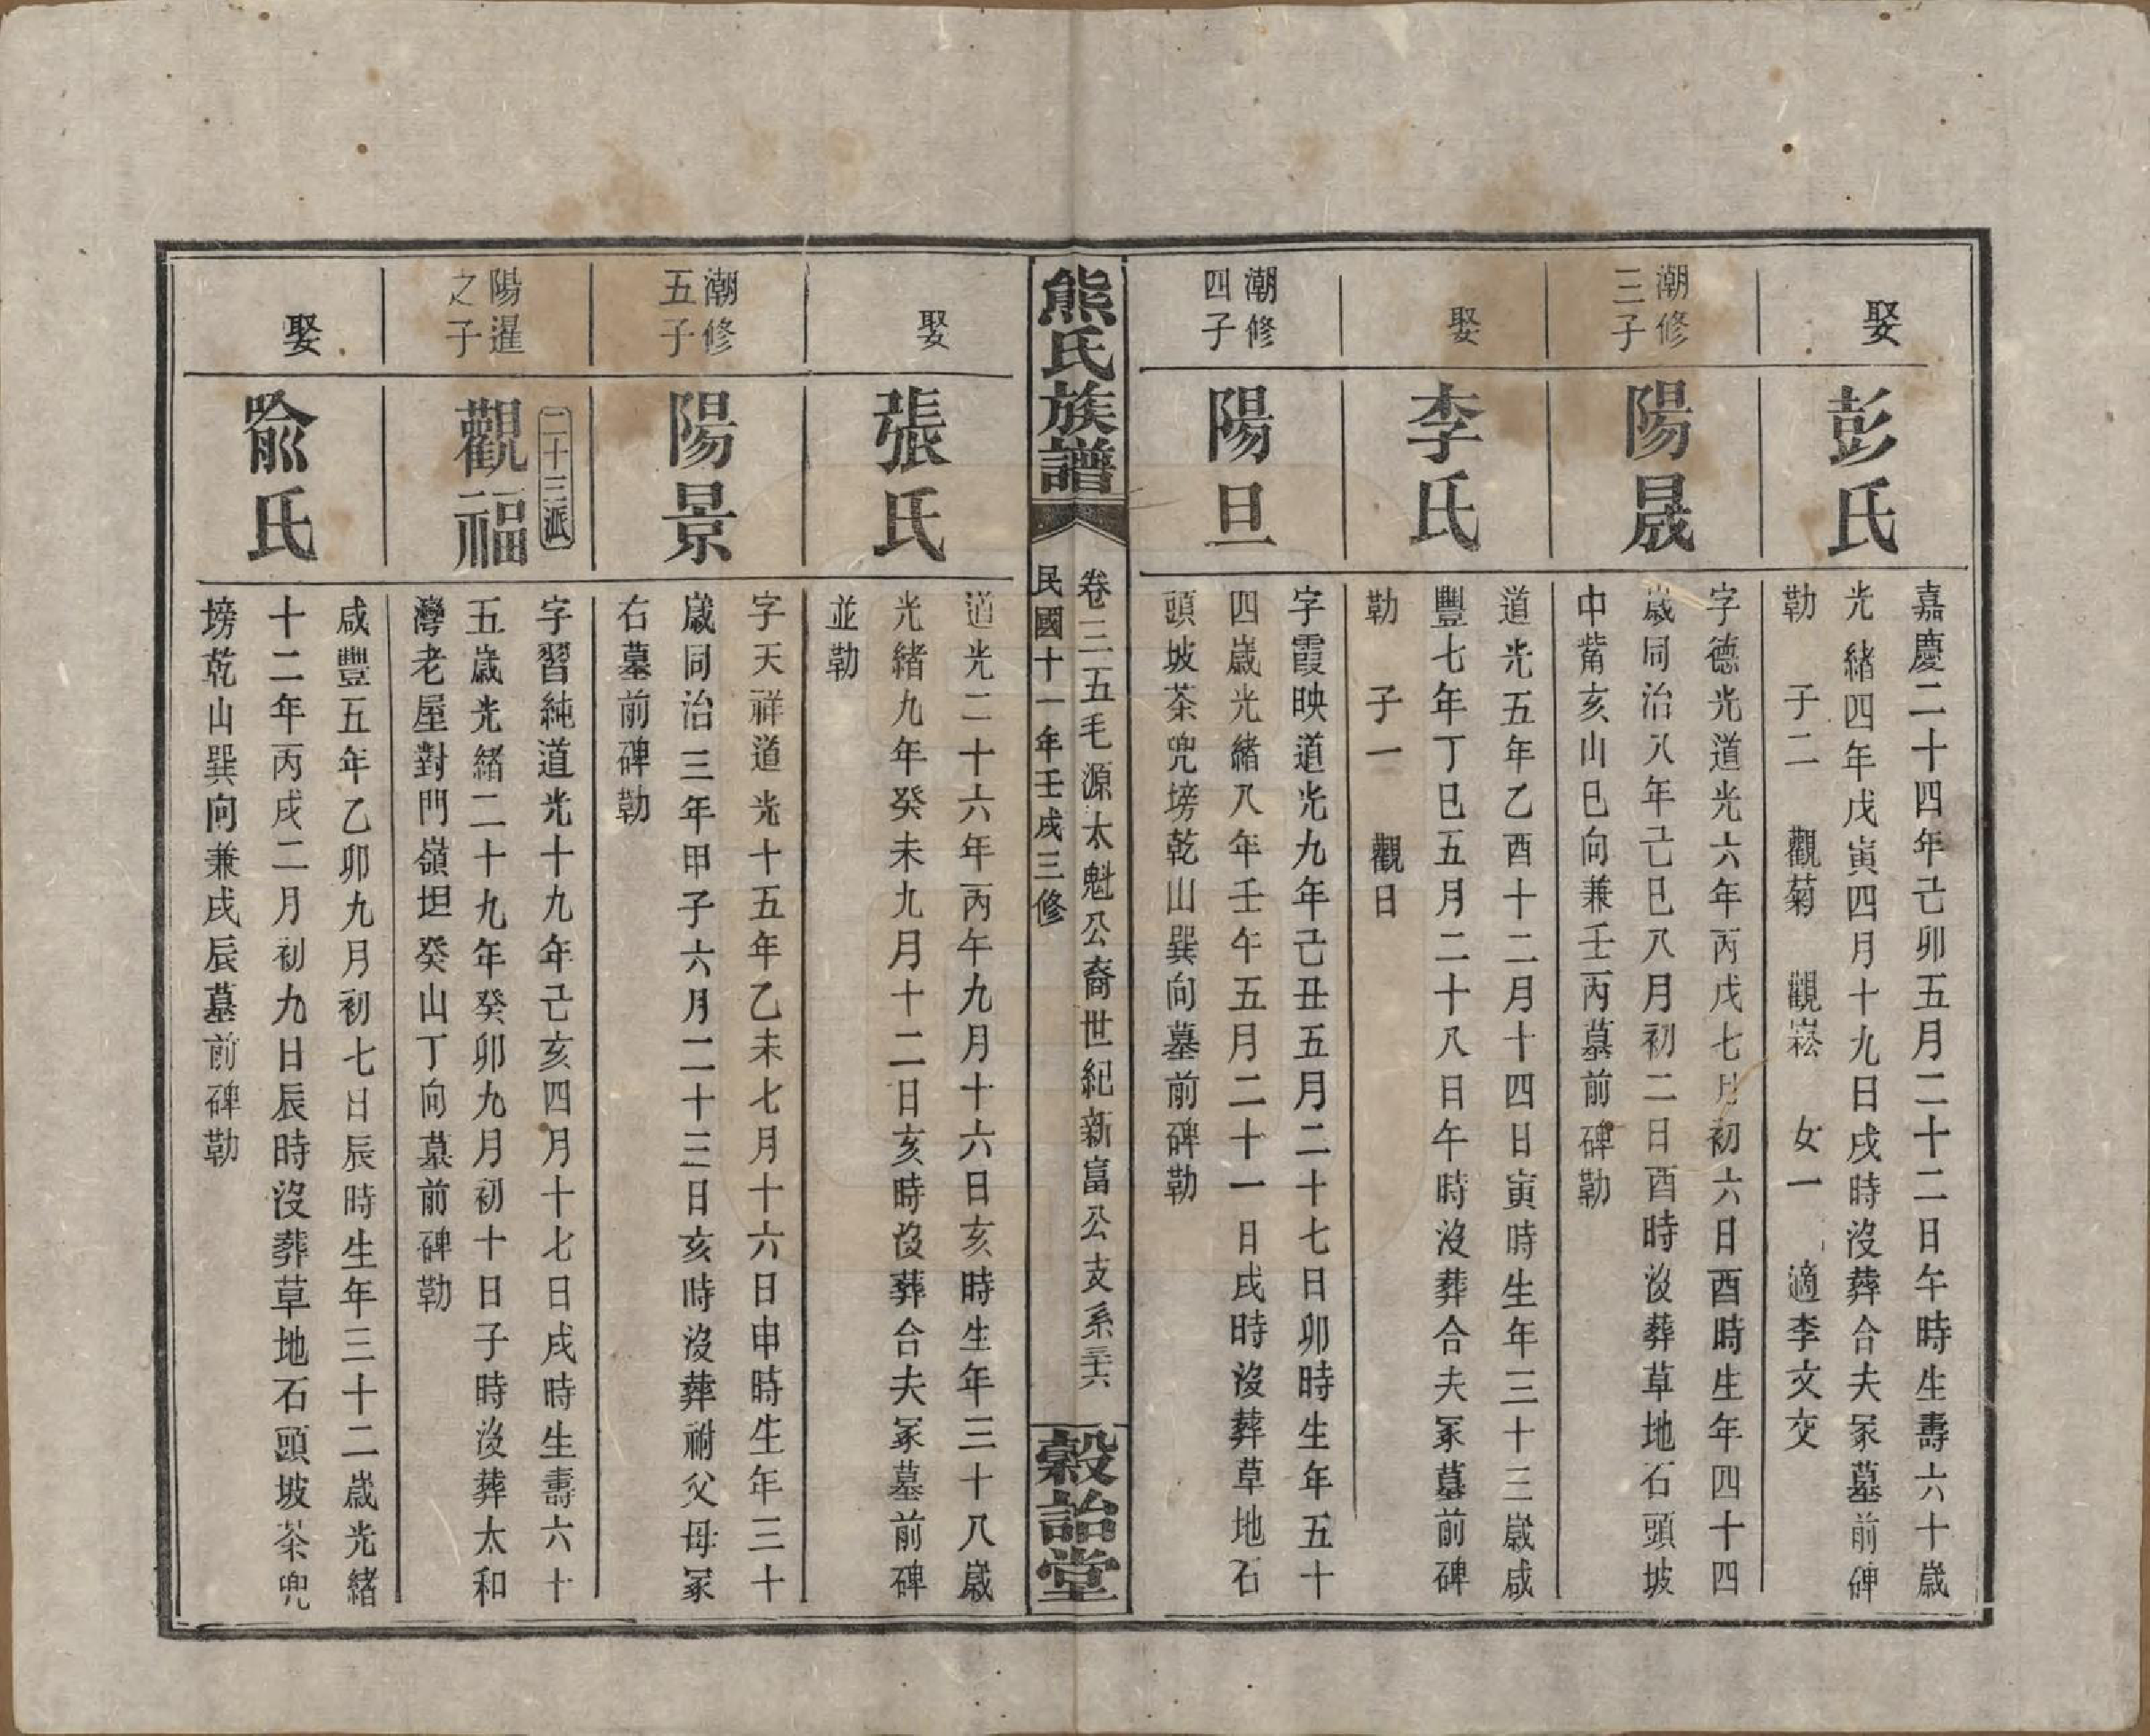 娶
彭氏
嘉慶二十四年己卯五月二十二日午時生壽六十歲
光緒四年戊寅四月十九日戌時沒葬合夫冢墓前碑
勒　子二　觀菊　觀崧　女一　適李文交
潮修
三子
陽晟
字德光道光六年丙戌七月初六日酉時生年四十四
歲同治八年己巳八月初二日酉時沒葬草地石頭坡
中觜亥山巳向兼壬丙墓前碑勒
娶
李氏
道光五年乙酉十二月十四日寅時生年三十三歲咸
豐七年丁巳五月二十八日午時沒葬合夫冢墓前碑
勒　子一　觀日
潮修
四子
陽旦
字霞映道光九年己丑五月二十七日卯時生年五十
四歲光緒八年壬午五月二十一日戌時沒葬草地石
頭坡茶兜塝乾山巽向墓前碑勒
熊氏族譜
卷三五毛源太魁公裔世紀新富公支系三十六
民國十一年壬戌三修
穀詒堂
娶
張氏
道光二十六年丙午九月十六日亥時生年三十八歲
光緒九年癸未九月十二日亥時沒葬合夫冢墓前碑
並勒
潮修
五子
陽景
字天祥道光十五年乙未七月十六日申時生年三十
歲同治三年甲子六月二十三日亥時沒葬祔父母冢
右墓前碑勒
陽暹
之子
二十三派
觀福
字習純道光十九年己亥四月十七日戌時生壽六十
五歲光緒二十九年癸卯九月初十日子時沒葬太和
灣老屋對門嶺坦癸山丁向墓前碑勒
娶
喻氏
咸豐五年乙卯九月初七日辰時生年三十二歲光緒
十二年丙戌二月初九日辰時沒葬草地石頭坡茶兜
塝乾山巽向兼戌辰墓前碑勒